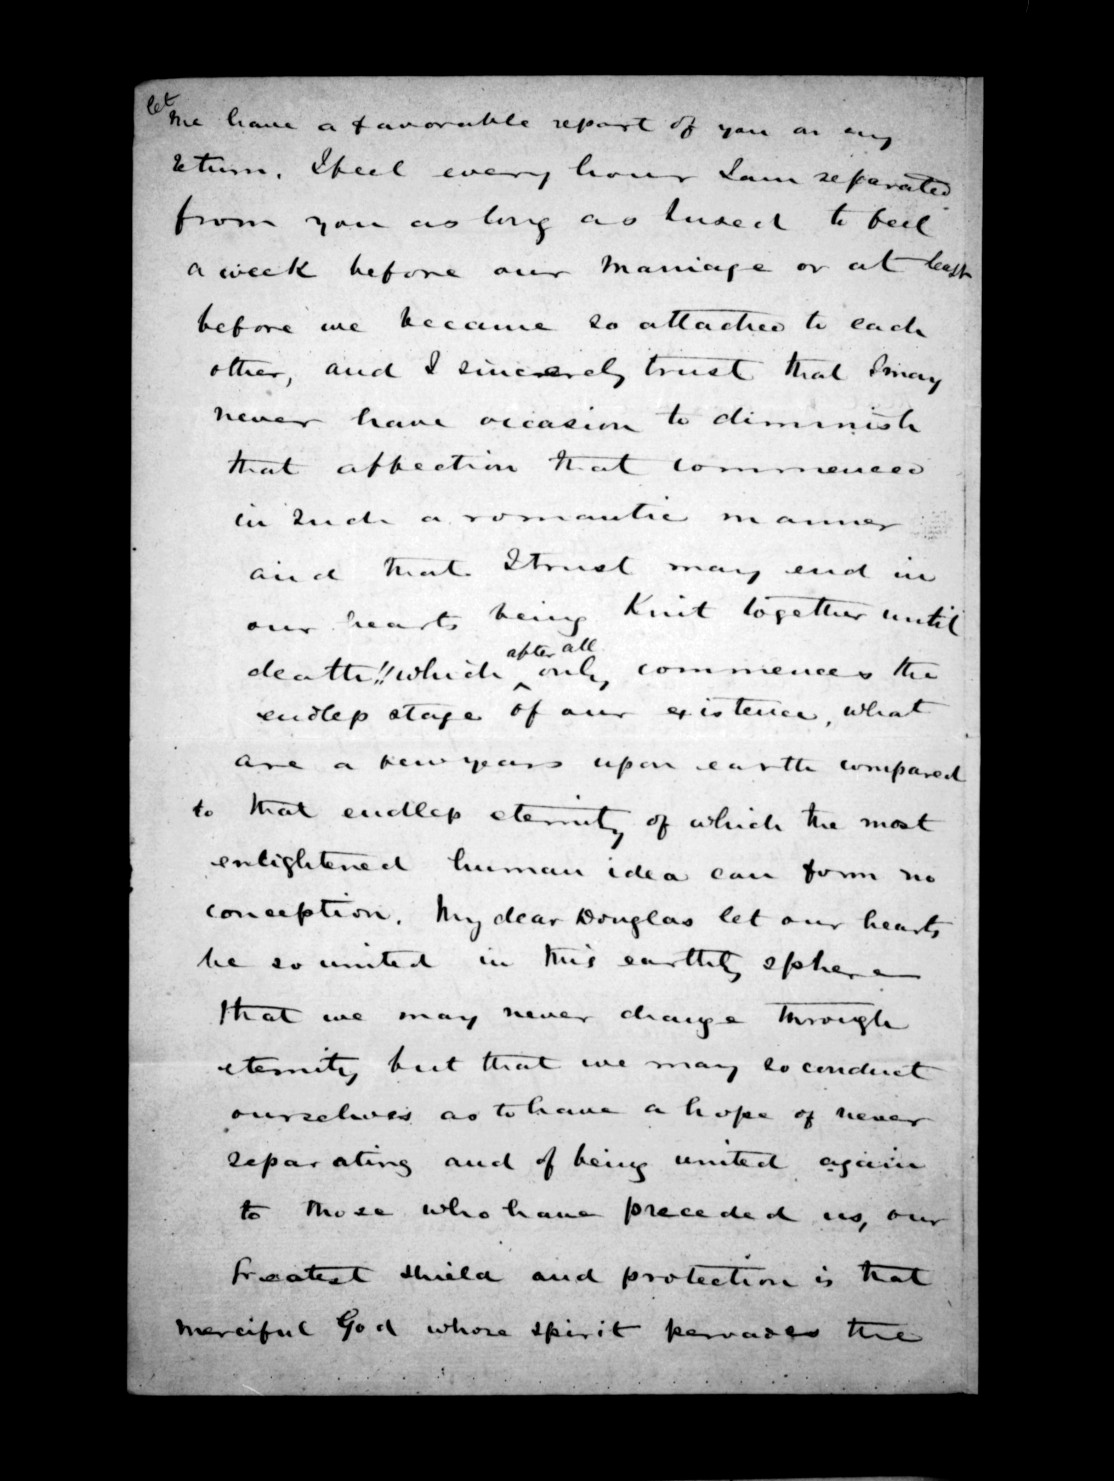 let me have a favorable report of you on my
return. I feel every hour I am separated
from you as long as I used to feel
a week before our Marriage or at least
before we became so attached to each
other, and I sincerely trust that I may
never have occasion to diminish
that affection that commenced
in such a romantic manner
and that I trust may end in
our hearts being Knit together until
death!! which after all only commences the
endless stage of our existence, what
are a few years upon earth compared
to that endless eternity of which the most
enlightened human idea can form no
conception. My dear Douglas let our hearts
be so united in this earthly sphere
that we may never change through
eternity but that we may so conduct
ourselves as to have a hope of never
separating and of being united again
to those who have preceded us, our
Greatest shield and protection is that
merciful God whose spirit pervades the